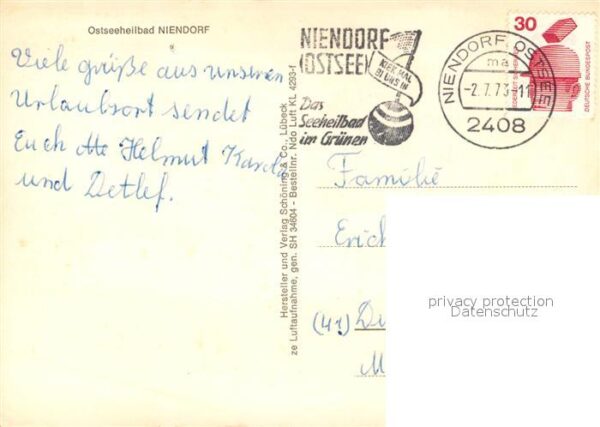 Ostseeheilbad NIENDORF
Viele grüße aus unseren
Urlaubsort sendet
Euch Helmut
und Detlef.
Hersteller und Verlag Schöning & Co., Lübeck
ze Luftaufnahme, gen. SH 34604 - Bestellnr. Ndo Luft KL 4293-f
NIENDORF
(OSTSEE)
KIEK MAL
BI UNS IN
Das
Seeheilbad
im Grünen
NIENDORF, OSTSEE
ma
-2.7.73-11
2408
30
DEUTSCHE BUNDESPOST
Familie
Erich
(41)
privacy protection
Datenschutz